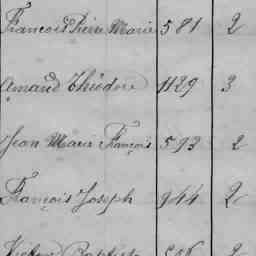 François Pierre Marie 581 2
Amand Théodore 1129 3
Jean Marie François 593 2
François Joseph 944 2
Baptiste 2